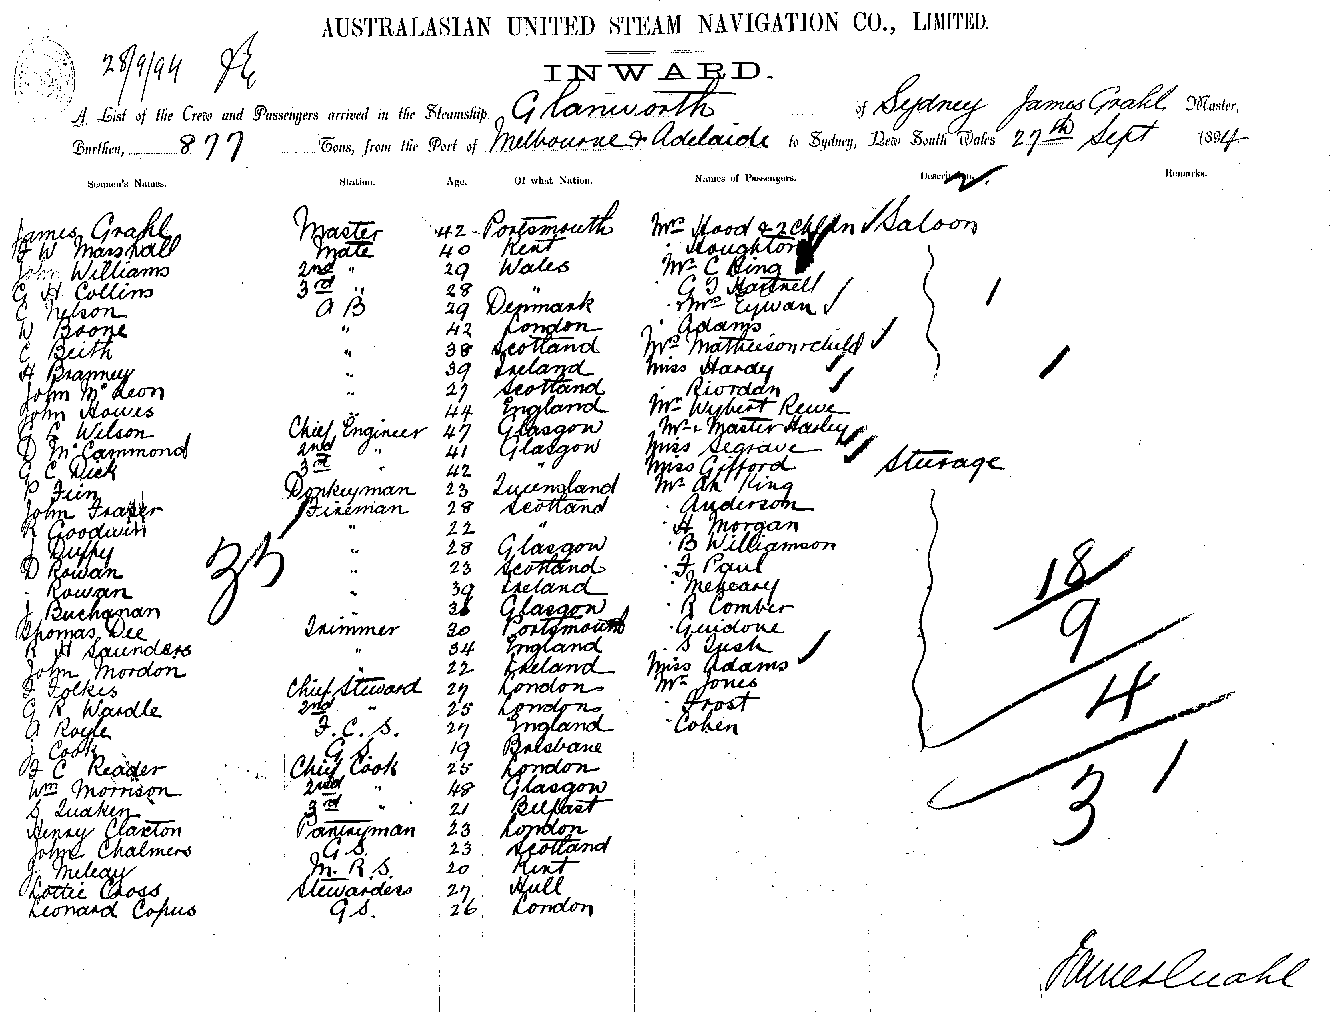 AUSTRALASIAN UNITED STEAM NAVIGATION CO., LIMITED.
28/9/94
INWARD.
A List of the Crew and Passengers arrived in the Steamship Glanworth of Sydney James Grahl Master,
Burthen, 877 Tons, from the Port of Melbourne & Adelaide to Sydney, New South Wales 27th Sept 1894
Seamen's Names. Station. Age. Of what Nation. Names of Passengers. Description. Remarks.
James Grahl Master 42 Portsmouth Mrs Hood & 2 Chldn Saloon
F W Marshall Mate 40 Kent Houghton
John Williams 2nd " 29 Wales Mr C King
G H Collins 3rd " 28 " G T Hartnell
C Nelson A B 29 Denmark Mrs Eywan
W Boone " 42 London Adams
C Beith " 38 Scotland Mrs Matheison & child
H Branney " 39 Ireland Miss Hardy
John McLeon " 27 Scotland " Riordan
John Howes " 44 England Mr Wybert Reeve
C Wilson Chief Engineer 47 Glasgow Mr & Master Harley
D McCammond 2nd " 41 Glasgow Miss Segrave
G C Dick 3rd " 42 " Miss Gifford Sturage
P Finn Donkeyman 23 Queensland Mr Ah King
John Fraser Fireman 28 Scotland Anderson
R Goodwin " 22 " H Morgan
J Duffy " 28 Glasgow B Williamson
D Rowan " 23 Scotland F Paul
Rowan " 39 Ireland Meheary
J Buchanan " 36 Glasgow R Comber
Thomas Dee Trimmer 30 Portsmouth Guidone
R H Saunders " 34 England S Lush
John Mordon " 22 Ireland Miss Adams
F Folkes Chief Steward 27 London Mr Jones
G R Wardle 2nd " 25 London Frost
A Royle F. C. S. 27 England Cohen
J Cook G S. 19 Brisbane
F C Reader Chief Cook 25 London
Wm Morrison 2nd " 48 Glasgow
S Quaken 3rd " 21 Belfast
Henry Claxton Pantryman 23 London
John Chalmers G S. 23 Scotland
J. Mileay M. R. S. 20 Kent
Lottie Cross Stewardess 27 Hull
Leonard Copus G S. 26 London
35
18
9
4
31
James Grahl